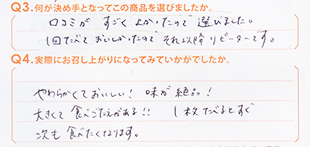 Q3.何が決め手となってこの商品を選びましたか。
口コミが すごく よかったので 選びました。
1回たべて おいしかったので それ以降 リピーターです。
Q4.実際にお召し上がりになってみていかがでしたか。
やわらかくて おいしい! 味が 絶品!
大きくて 食べごたえがある!! 1枚たべるとすぐ
次も 食べたくなります。